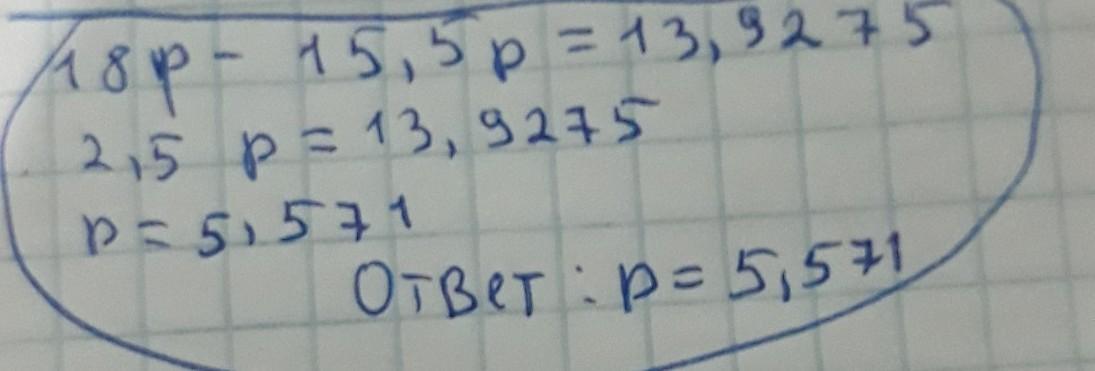 18p - 15,5p = 13,9275
2,5 p = 13,9275
p = 5,571
Ответ : p = 5,571